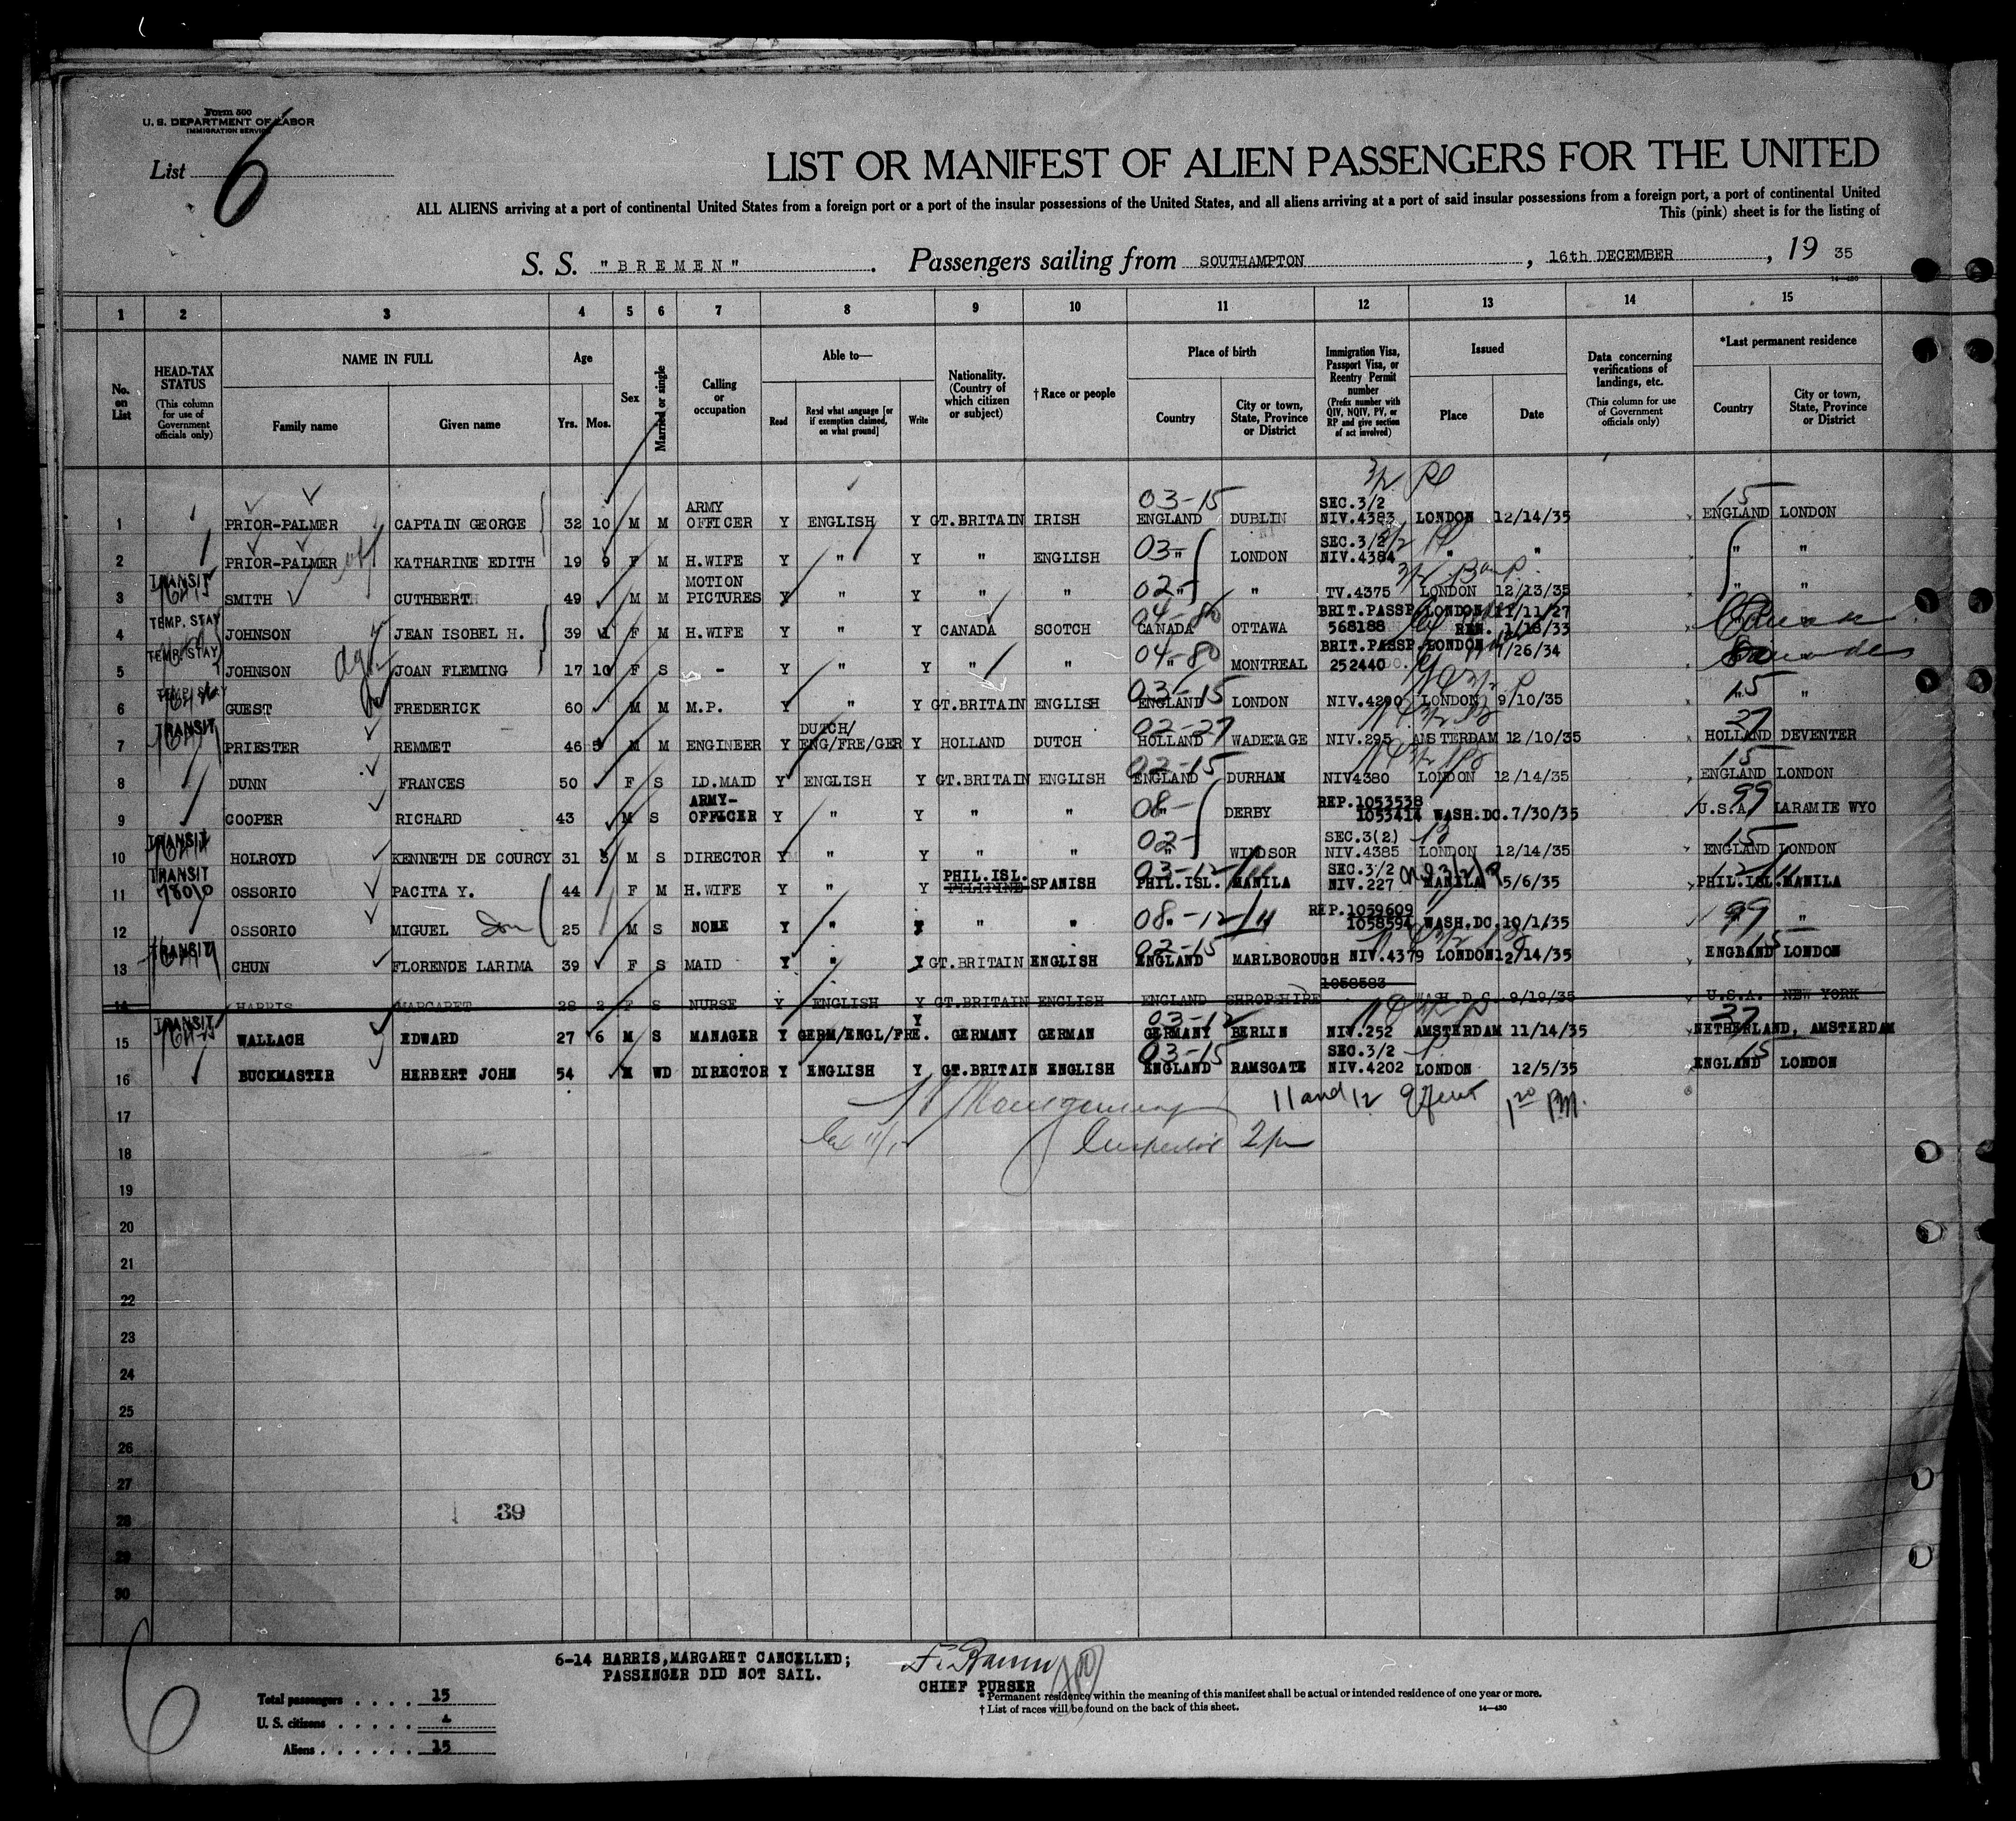 Form 500
U. S. DEPARTMENT OF LABOR
IMMIGRATION SERVICE
List 6
LIST OR MANIFEST OF ALIEN PASSENGERS FOR THE UNITED
ALL ALIENS arriving at a port of continental United States from a foreign port or a port of the insular possessions of the United States, and all aliens arriving at a port of said insular possessions from a foreign port, a port of continental United
This (pink) sheet is for the listing of
S. S. "BREMEN" . Passengers sailing from SOUTHAMPTON , 16th DECEMBER , 19 35
14—430
1 2 3 4 5 6 7 8 9 10 11 12 13 14 15
No. on List
HEAD-TAX STATUS (This column for use of Government officials only)
NAME IN FULL
Family name Given name
Age
Yrs. Mos.
Sex
Married or single
Calling or occupation
Able to—
Read
Read what language [or if exemption claimed, on what ground]
Write
Nationality. (Country of which citizen or subject)
†Race or people
Place of birth
Country
City or town, State, Province or District
Immigration Visa, Passport Visa, or Reentry Permit number (Prefix number with QIV, NQIV, PV, or RP and give section of act involved)
Issued
Place Date
Data concerning verifications of landings, etc. (This column for use of Government officials only)
*Last permanent residence
Country
City or town, State, Province or District
3/2
1 PRIOR-PALMER CAPTAIN GEORGE 32 10 M M ARMY OFFICER Y ENGLISH Y GT.BRITAIN IRISH 03-15 ENGLAND DUBLIN SEC.3/2 NIV.4383 LONDON 12/14/35 15 ENGLAND LONDON
2 PRIOR-PALMER KATHARINE EDITH 19 9 F M H.WIFE Y " Y " ENGLISH 03- " LONDON SEC.3/2 NIV.4384 " " " "
3 TRANSIT SMITH CUTHBERT 49 M M MOTION PICTURES Y " Y " " 02- " " TV.4375 LONDON 12/13/35 " "
4 TEMP. STAY JOHNSON JEAN ISOBEL H. 39 1 F M H.WIFE Y " Y CANADA SCOTCH 04-80 CANADA OTTAWA BRIT.PASSP. 568188 LONDON 11/11/27 REN. 1/18/33
5 TEMP. STAY JOHNSON JOAN FLEMING 17 10 F S - Y " Y " " 04-80 " MONTREAL BRIT.PASSP. 252440 LONDON 7/26/34
6 TEMP. STAY GUEST FREDERICK 60 M M M.P. Y " Y GT.BRITAIN ENGLISH 03-15 ENGLAND LONDON NIV.4290 LONDON 9/10/35 15 " "
7 TRANSIT PRIESTER REMMET 46 5 M M ENGINEER Y DUTCH/ ENG/FRE/GER Y HOLLAND DUTCH 02-27 HOLLAND WADENAGE NIV.295 AMSTERDAM 12/10/35 27 HOLLAND DEVENTER
8 DUNN FRANCES 50 F S LD.MAID Y ENGLISH Y GT.BRITAIN ENGLISH 02-15 ENGLAND DURHAM NIV4380 LONDON 12/14/35 15 ENGLAND LONDON
9 COOPER RICHARD 43 M S ARMY- OFFICER Y " Y " " 08- " DERBY REP.1053538 1053414 WASH.DC. 7/30/35 99 U.S.A. LARAMIE WYO
10 TRANSIT HOLROYD KENNETH DE COURCY 31 3 M S DIRECTOR Y " Y " " 02- " WINDSOR SEC.3(2) NIV.4385 LONDON 12/14/35 15 ENGLAND LONDON
11 TRANSIT 78010 OSSORIO PACITA Y. 44 F M H.WIFE Y " Y PHIL.ISL. PILIPINE SPANISH 03-12 PHIL.ISL. MANILA SEC.3/2 NIV.227 MANILA 5/6/35 12 PHIL.ISL. MANILA
12 OSSORIO MIGUEL Son 25 M S NONE Y " Y " " 08-12 " " REP.1059609 1058594 WASH.DC. 10/1/35 99 " "
13 TRANSIT CHUN FLORENCE LARIMA 39 F S MAID Y " Y GT.BRITAIN ENGLISH 02-15 ENGLAND MARLBOROUGH NIV.4379 LONDON 12/14/35 15 ENGLAND LONDON
14 HARRIS MARGARET 28 2 F S NURSE Y ENGLISH Y GT.BRITAIN ENGLISH ENGLAND SHROPSHIRE 1058583 WASH.D.C. 9/19/35 U.S.A. NEW YORK
15 TRANSIT WALLACH EDWARD 27 6 M S MANAGER Y GERM/ENGL/FRE. Y GERMANY GERMAN 03-12 GERMANY BERLIN NIV.252 AMSTERDAM 11/14/35 27 NETHERLAND, AMSTERDAM
16 BUCKMASTER HERBERT JOHN 54 M WD DIRECTOR Y ENGLISH Y GT.BRITAIN ENGLISH 03-15 ENGLAND RAMSGATE SEC.3/2 NIV.4202 LONDON 12/5/35 15 ENGLAND LONDON
17 Montgomery 11 and 12 1 20 P.M.
18 Inspector
19
20
21
22
23
24
25
26
27
39
28
29
30
6
6-14 HARRIS,MARGARET CANCELLED;
PASSENGER DID NOT SAIL.
CHIEF PURSER
Total passengers . . . . 15
U. S. citizens . . . . . -
Aliens . . . . . . 15
* Permanent residence within the meaning of this manifest shall be actual or intended residence of one year or more.
† List of races will be found on the back of this sheet.
14—430